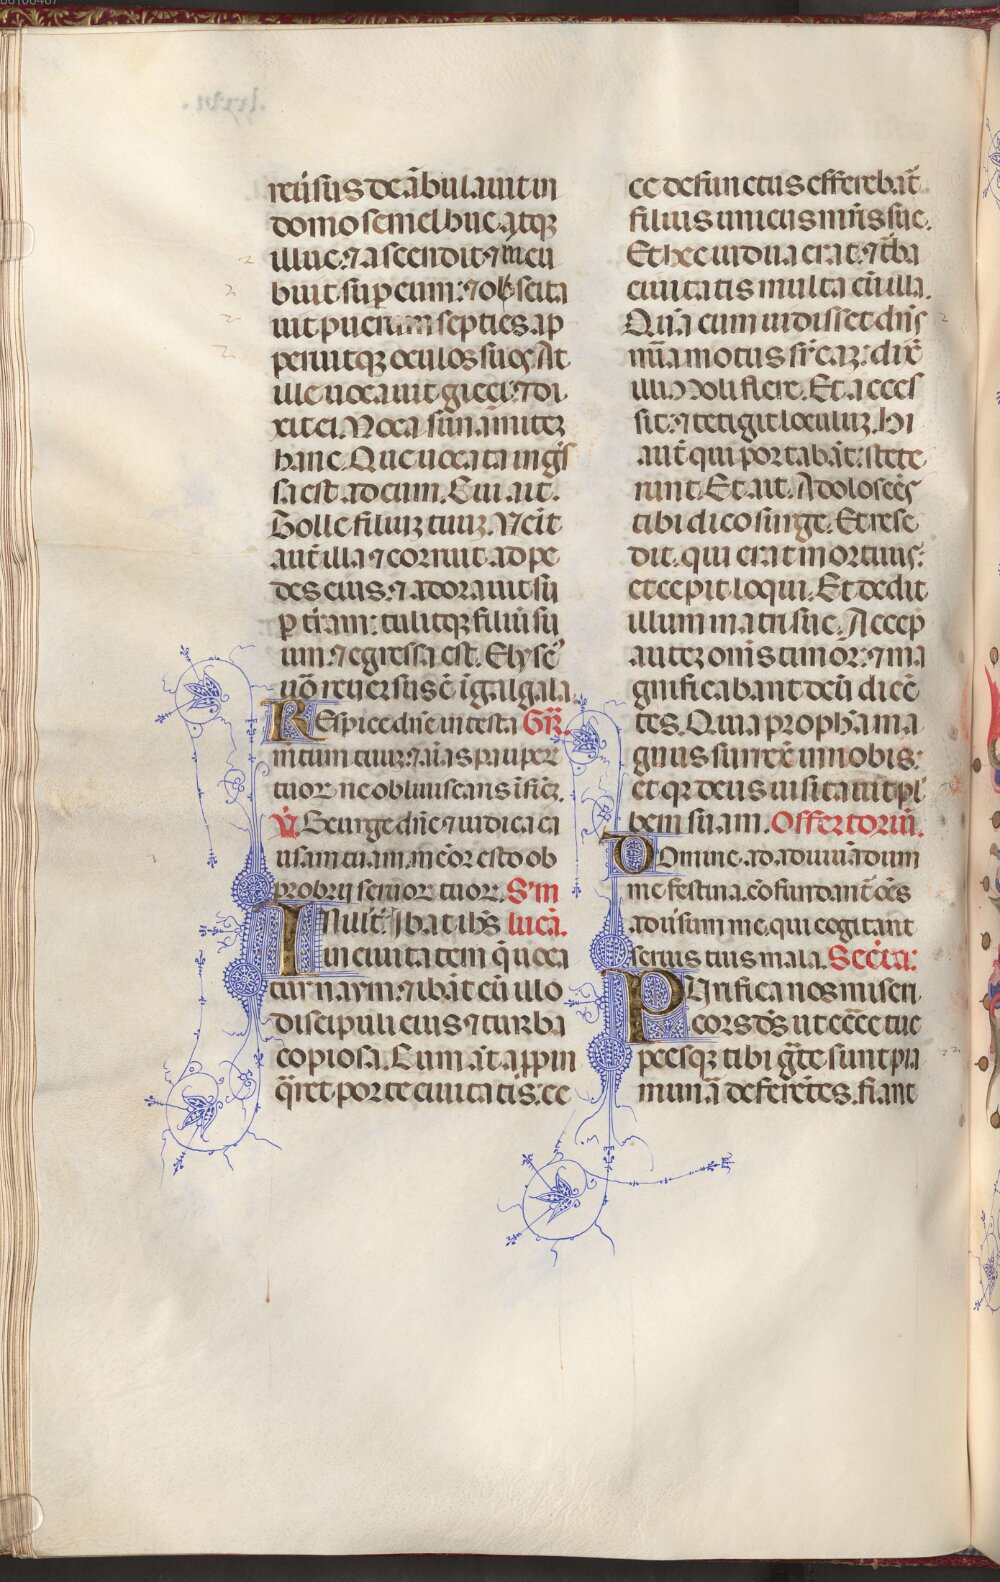 reu͛sus deābulauit in
domo semel huc atq̨
illuc. ⁊ ascendit ⁊ incu
buit sup eum: ⁊ oscita
uit puer septies. ap
peruitqꝫ oculos suos. At
ille uocauit gieci: ⁊ di
xit ei. Uoca sunamiteꝫ
hanc. Que uocata ingr̄s
sa est ad eum. Cui ait.
Tolle filiuꝫ tuuꝫ. Uenit
aut̄ illa ⁊ corruit ad pe
des eius. ⁊ adorauit su
p tr̄am: tulitqꝫ filiū su
um. ⁊ egressa est. Elyse9
uō reuersus ē ī galgala.
REspice dn̄e in testa Gr̄.
m̄tum tuuꝫ: ⁊ aīas pauper
tuoꝝ ne obliuiscaris ī finē.
V̄. Exurge dn̄e ⁊ iudica ca
usam tuam. memor esto ob
probrij seruoꝝ tuoꝝ. S'm
IN illo t̄. Ibat ih̄s lucā.
in ciuitatem q̄ uoca
tur naym. ⁊ ibāt cū illo
discipuli eius ⁊ turba
copiosa. Cum āt appin
q̄ret porte ciuitatis. ec
ce defunctus efferebat̄
filius unicus mr̄is sue.
Et hec uidua erat. ⁊ t̄ba
ciuitatis multa cū illa.
Quā cum uidisset dn̄s
mīa motus sr̄ eaꝫ: dix̄
illi. Noli flere. Et acces
sit. ⁊ tetigit loculuꝫ. Hi
aut̄ qui portabāt: stete
runt. Et ait. Adolescēs
tibi dico surge. Et rese
dit. qui erat mortuus:
et cepit loqui. Et dedit
illum matri sue. Accep
auteꝫ om̄is timor: ⁊ ma
gnificabant deū dicē
tes. Quia propha ma
gnus surrex̄ in nobis:
et qꝫ deus uisitauit ple
bem suam. Offertoriū.
DOmine. ad adiuuādum
me festina. cōfundant̄ oēs
adu͛sum me. qui cogitant
seruis tuis mala. Secr̄ta:
PUrifica nos miseri
cors ds̄ ut ecc̄e tue
pcesqꝫ tibi gr̄te sunt pia
munīa deferētes. fiant